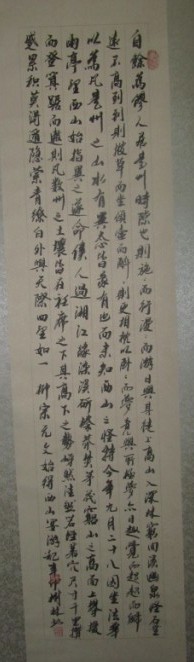 自餘為僇人居是州時隙也則施而行漫而游日與其徒上高山入深林窮回溪幽泉怪石無
遠不到到則披草而坐傾壺而醉則更相枕以臥而夢意與所極夢亦同趣覺而起起而歸
以為凡是州之山水有異態皆我有也而未知西山之怪特今年九月二十八因坐法華
西亭望西山始指異之遂命僕人過湘江緣染溪斫榛莽焚茅茷窮山之高而上攀援
而登箕踞而遨則凡數州之土壤皆在衽席之下其高下之勢岈然洼然若垤若穴尺寸千里攢
蹙累積莫得遁隱縈青繚白外與天際四望如一 柳宗元文始得西山宴游記